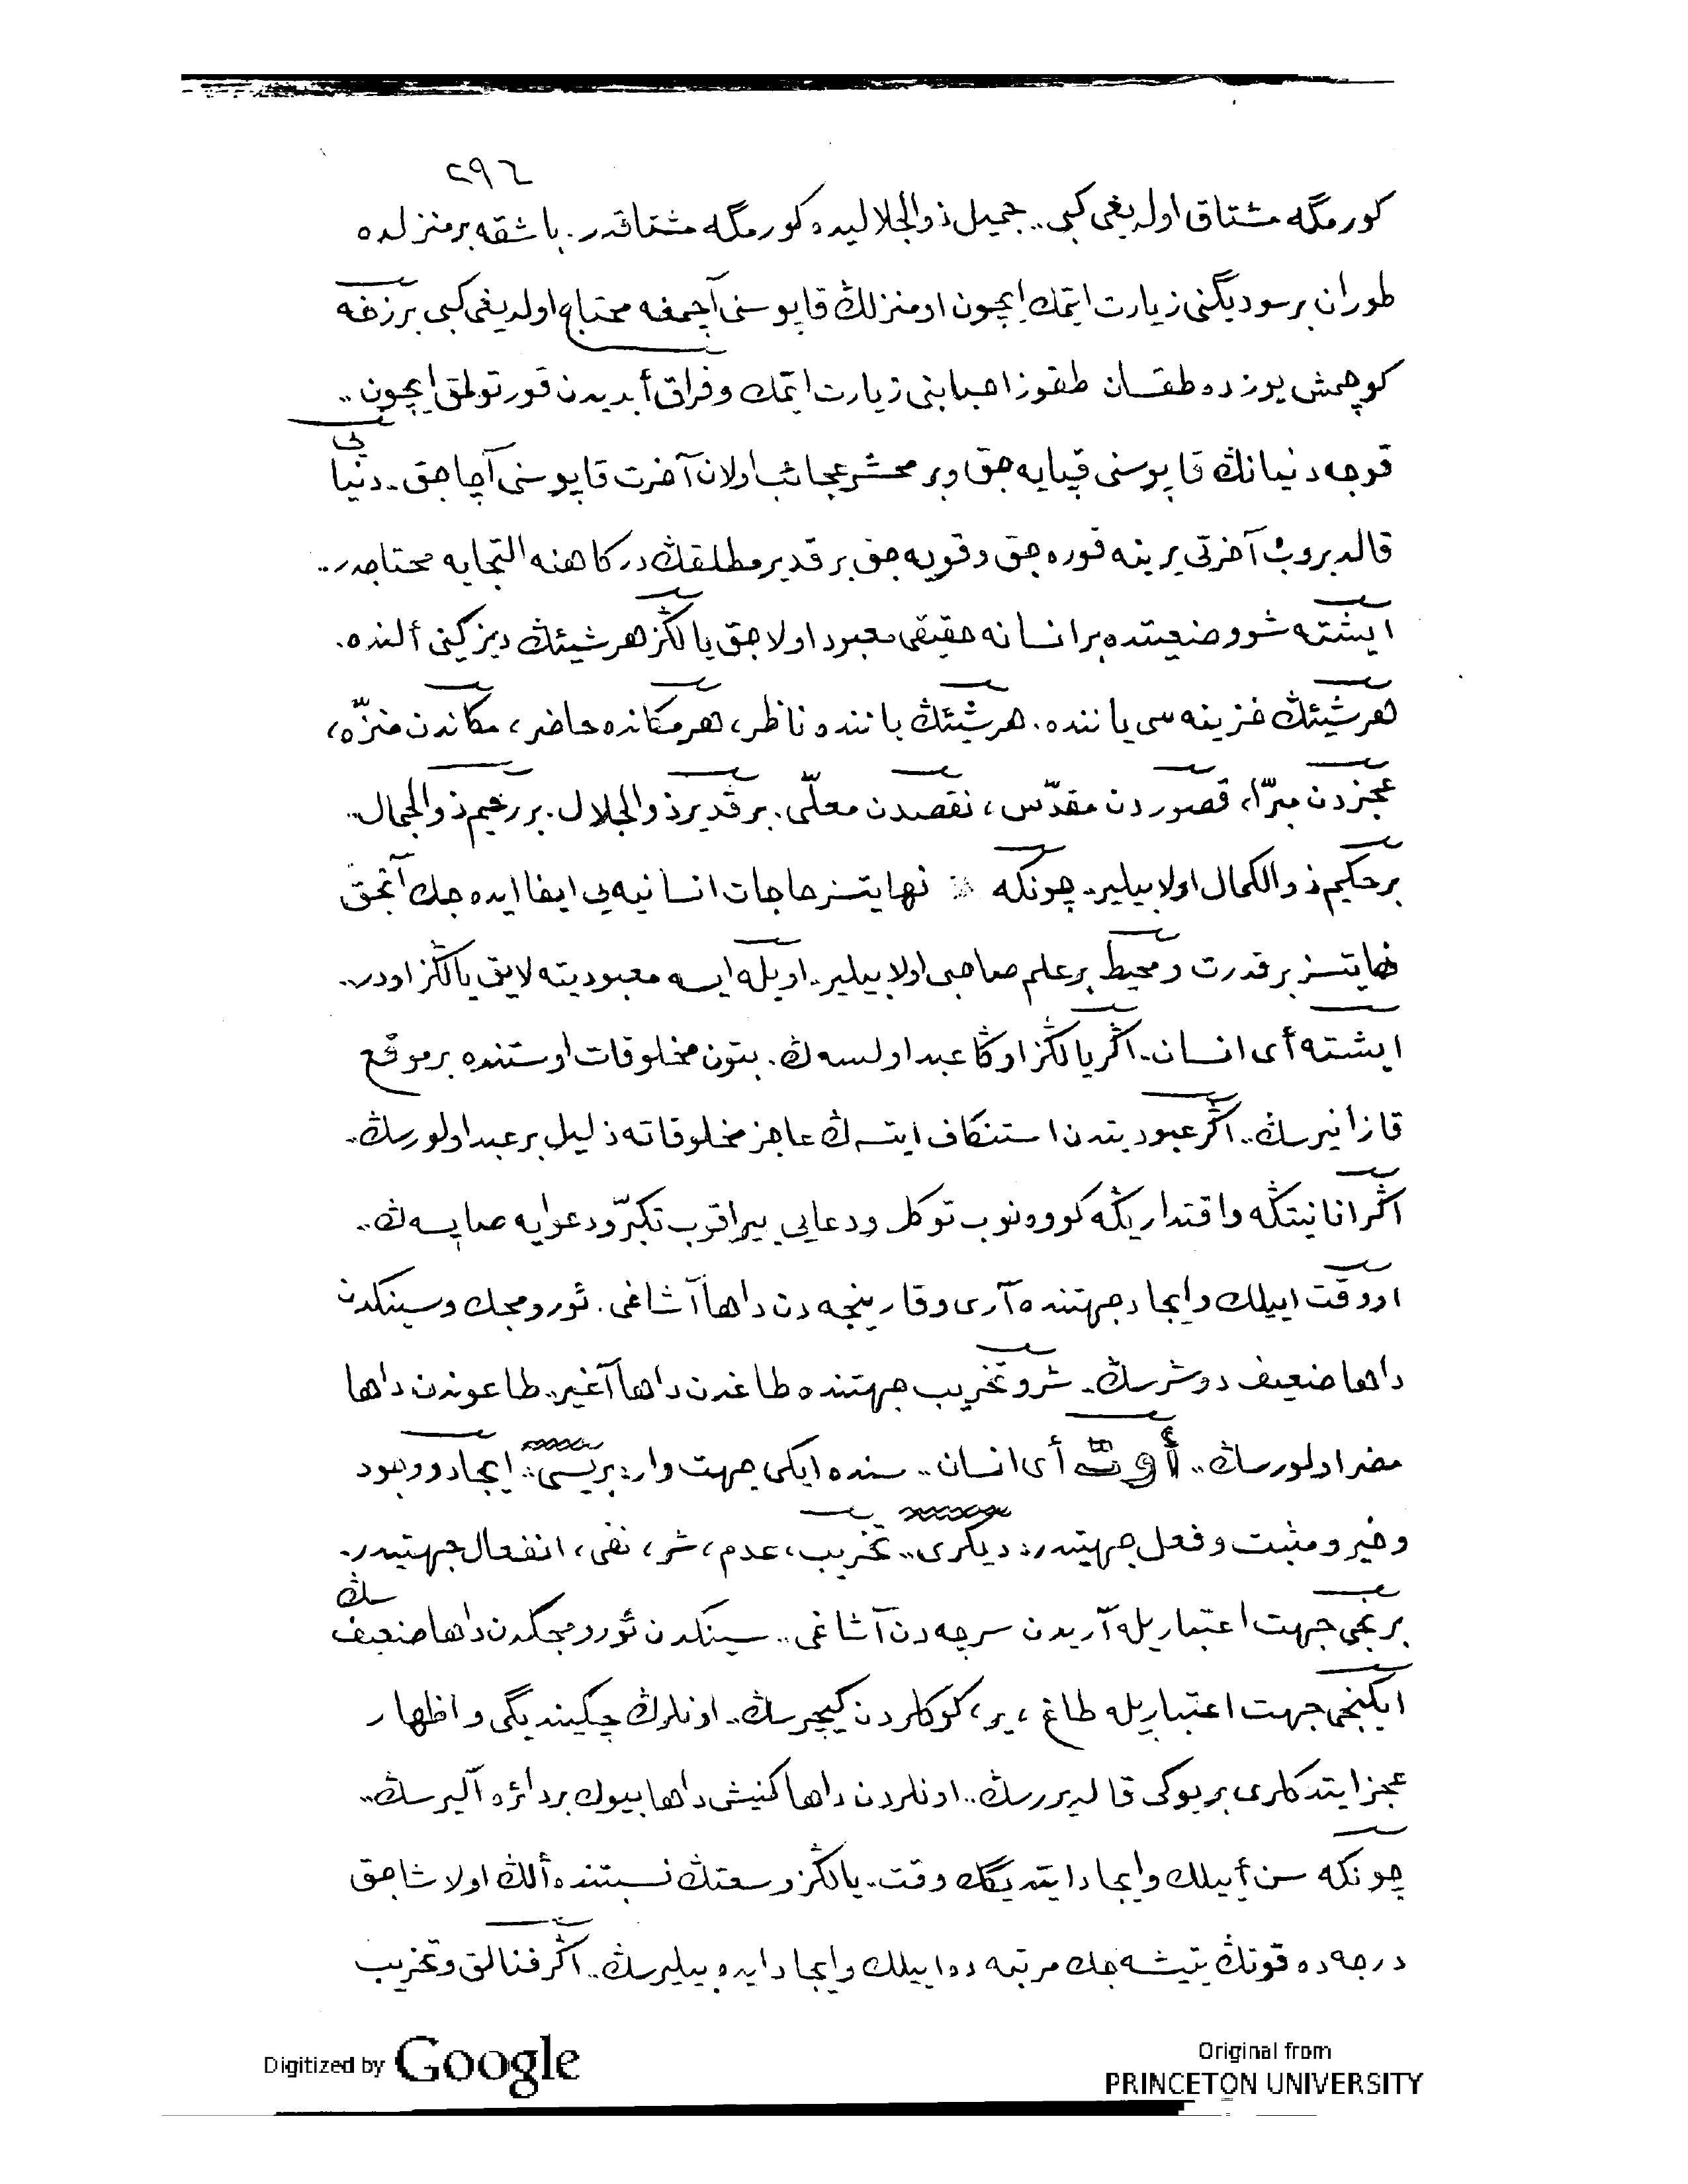 ٢٩٦
كورمگه مشتاق اولديغى كبى.. جميل ذوالجلاليده كورمگه مشتاقدر. باشقه بر منزلده
طوران بر سوديگنى زيارت ايتمك ايچون او منزلڭ قاپوسنى آچمغه محتاج اولديغى كبى برزخه
كوچمش يوزده طقسان طقوز احبابنى زيارت ايتمك وفراق أبديدن قورتولمق ايچون..
قوجه دنيانڭ قاپوسنى قپايه جق وبر محشر عجائب اولان آخرت قاپوسنى آچاجق.. دنيايى
قالديروب آخرتى يرينه قوره جق وقويه جق بر قدير مطلقڭ درگاهنه التجايه محتاجدر..
ايشته شو وضعيتده بر انسانه حقيقى معبود اولاجق يالڭز هر شيئڭ ديزگينى ألنده.
هر شيئڭ خزينه سى ياننده. هر شيئڭ ياننده ناظر، هر مكانده حاضر، مكاندن منزّه،
عجزدن مبرّا، قصوردن مقدّس، نقصدن معلّى. بر قدير ذوالجلال. بر رحيم ذوالجمال..
بر حكيم ذوالكمال اولابيلير.. چونكه نهايتسز حاجات انسانيه يى ايفا ايده جك آنجق
نهايتسز بر قدرت ومحيط بر علم صاحبى اولابيلير.. اويله ايسه معبوديته لايق يالڭز اودر..
ايشته أى انسان.. اگر يالڭز اوڭا عبد اولسه ڭ. بتون مخلوقات اوستنده بر موقع
قازانيرسڭ.. اگر عبوديتدن استنكاف ايتسه ڭ عاجز مخلوقاته ذليل بر عبد اولورسڭ..
اگر انانيتڭه واقتداريڭه كووه نوب توكل ودعايى بيراقوب تكبّر ودعوايه صاپسه ڭ..
او وقت اييلك وايجاد جهتنده آرى وقارينجه دن داها آشاغى. ئورومجك وسينكدن
داها ضعيف دوشرسڭ.. شر وتخريب جهتنده طاغدن داها آغير.. طاعوندن داها
مضر اولورسڭ.. أوت أى انسان.. سنده ايكى جهت وار: بريسى: ايجاد ووجود
وخير ومثبت وفعل جهتيدر: ديگرى.. تخريب، عدم، شر، نفى، انفعال جهتيدر.
برنجى جهت اعتباريله آريدن سرچه دن آشاغى.. سينكدن ئورومجكدن داها ضعيفسڭ
ايكنجى جهت اعتباريله طاغ، ير، كوكلردن گيچرسڭ.. اونلرڭ چكينديگى واظهار
عجز ايتدكلرى بر يوكى قالديررسڭ.. اونلردن داها گنيش داها بيوك بر دائره آليرسڭ..
چونكه سن أييلك وايجاد ايتديگڭ وقت.. يالڭز وسعتڭ نسبتنده ألڭ اولاشاجق
درجه ده قوتڭ يتيشه جك مرتبه ده اييلك وايجاد ايده بيليرسڭ.. اگر فنالق وتخريب
Digitized by Google
Original from
PRINCETON UNIVERSITY